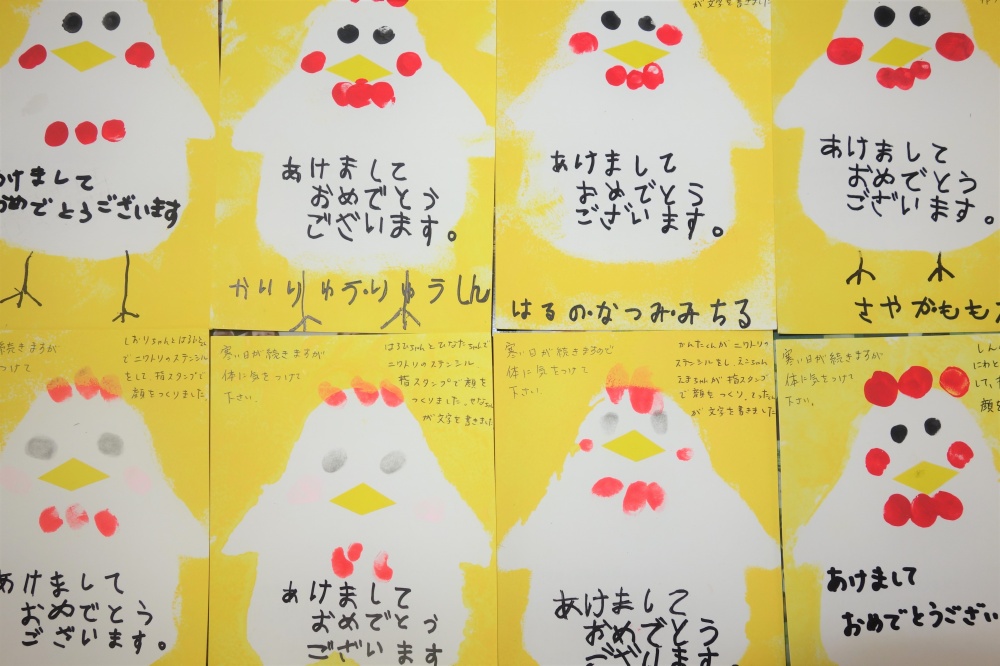 けまして
おめでとうございます
あけまして
おめでとう
ございます。
かいり りゅう・りゅうしん
が文字を書きました
あけまして
おめでとう
ございます。
はるの・なつみ・みちる
あけまして
おめでとう
ございます。
さやか・もも
続きますが
つけて
でニワトリのステンシル
をして指スタンプで
顔をつくりました。
あけまして
おめでとう
ございます。
寒い日が続きますが
体に気をつけて
下さい。
はるひとひなたちゃんで
ニワトリのステンシル
指スタンプで顔を
つくりました。
が文字を書きました
あけまして
おめでとう
ございます
寒い日が続きますので
体に気をつけて
下さい。
かんたくんがニワトリの
ステンシルをし、えこちゃん
えまちゃんが指スタンプ
で顔をつくり、
が文字を書きました
あけまして
おめでとう
ございます
寒い日が続きますが
体に気をつけて
下さい。
しん
にわと
して、
顔を
あけまして
おめでとうござい